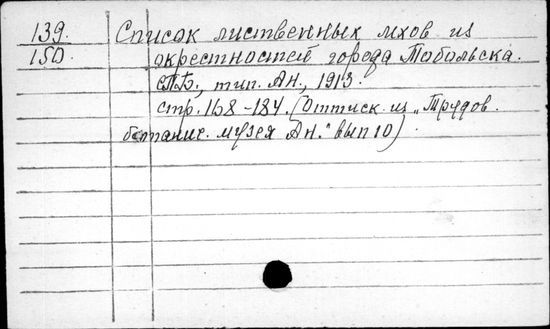 139. Список лиственных мхов из
150. окрестностей города Тобольска.
СПБ., тип. Ан., 1913.
стр. 168-184. (Оттиск. из „Трудов.
ботанич. музея Ан." вып 10).